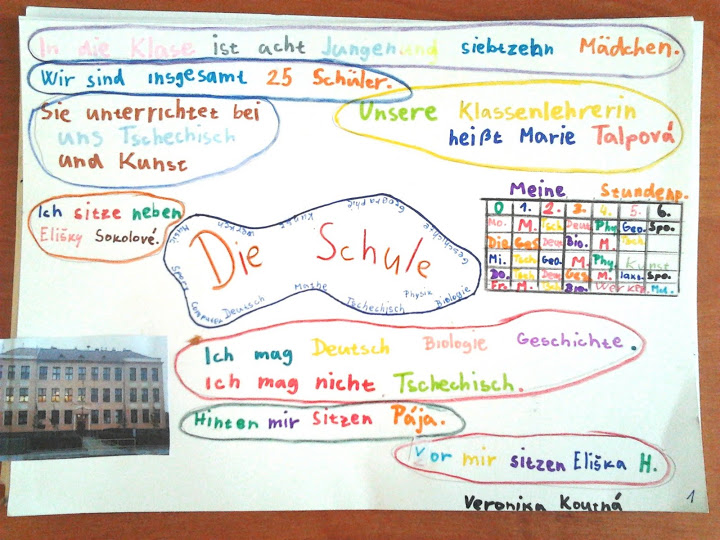 In die Klase ist acht Jungen und siebtzehn Mädchen.
Wir sind insgesamt 25 Schüler.
Sie unterrichtet bei
uns Tschechisch
und Kunst
Unsere Klassenlehrerin
heißt Marie Talpová
Ich sitze neben
Elišky Sokolové.
Die Schule
Musik
Werken
Kunst
Geographie
Geschichte
Sport
Computer
Deutsch
Mathe
Tschechisch
Physik
Biologie
Meine Stundenp.
0 1. 2. 3. 4. 5. 6.
Mo. M. Tsch Deu. Phy. Geo. Spo.
Die. Ges Deu. Bio. M. Tsch
Mi. Tsch Geo. M. Phy. Kunst
Do. Tsch Deu. Ges M. Spo.
Fr. M. Tsch Bio. Werken
Ich mag Deutsch Biologie Geschichte.
Ich mag nicht Tschechisch.
Hinten mir sitzen Pája.
Vor mir sitzen Eliška H.
Veronika Koutná
1